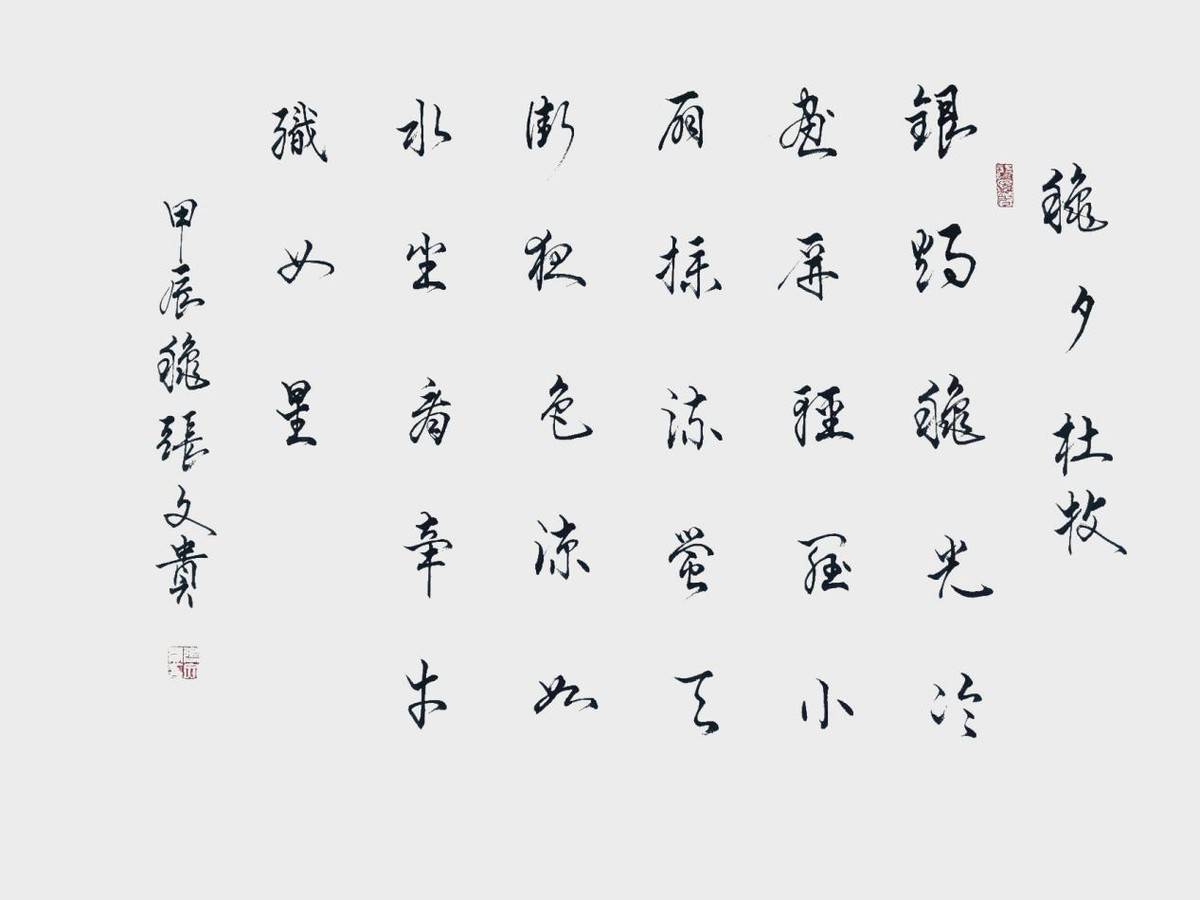 穐夕 杜牧
銀燭穐光冷
畫屏輕羅小
扇撲流螢天
街夜色涼如
水坐看牽牛
織女星
甲辰穐張文貴